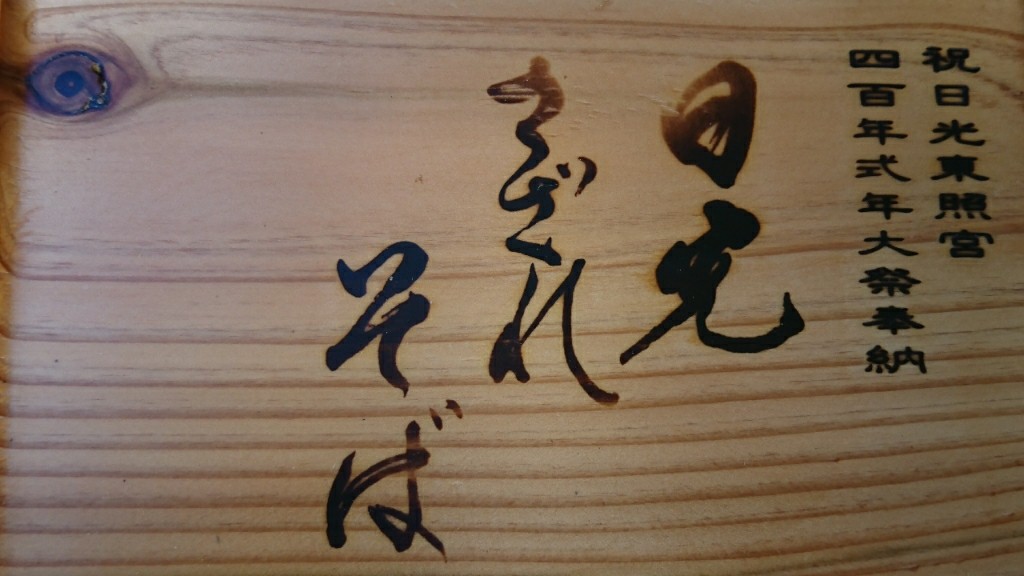 祝日光東照宮
四百年式年大祭奉納
日光
さざれ
そば